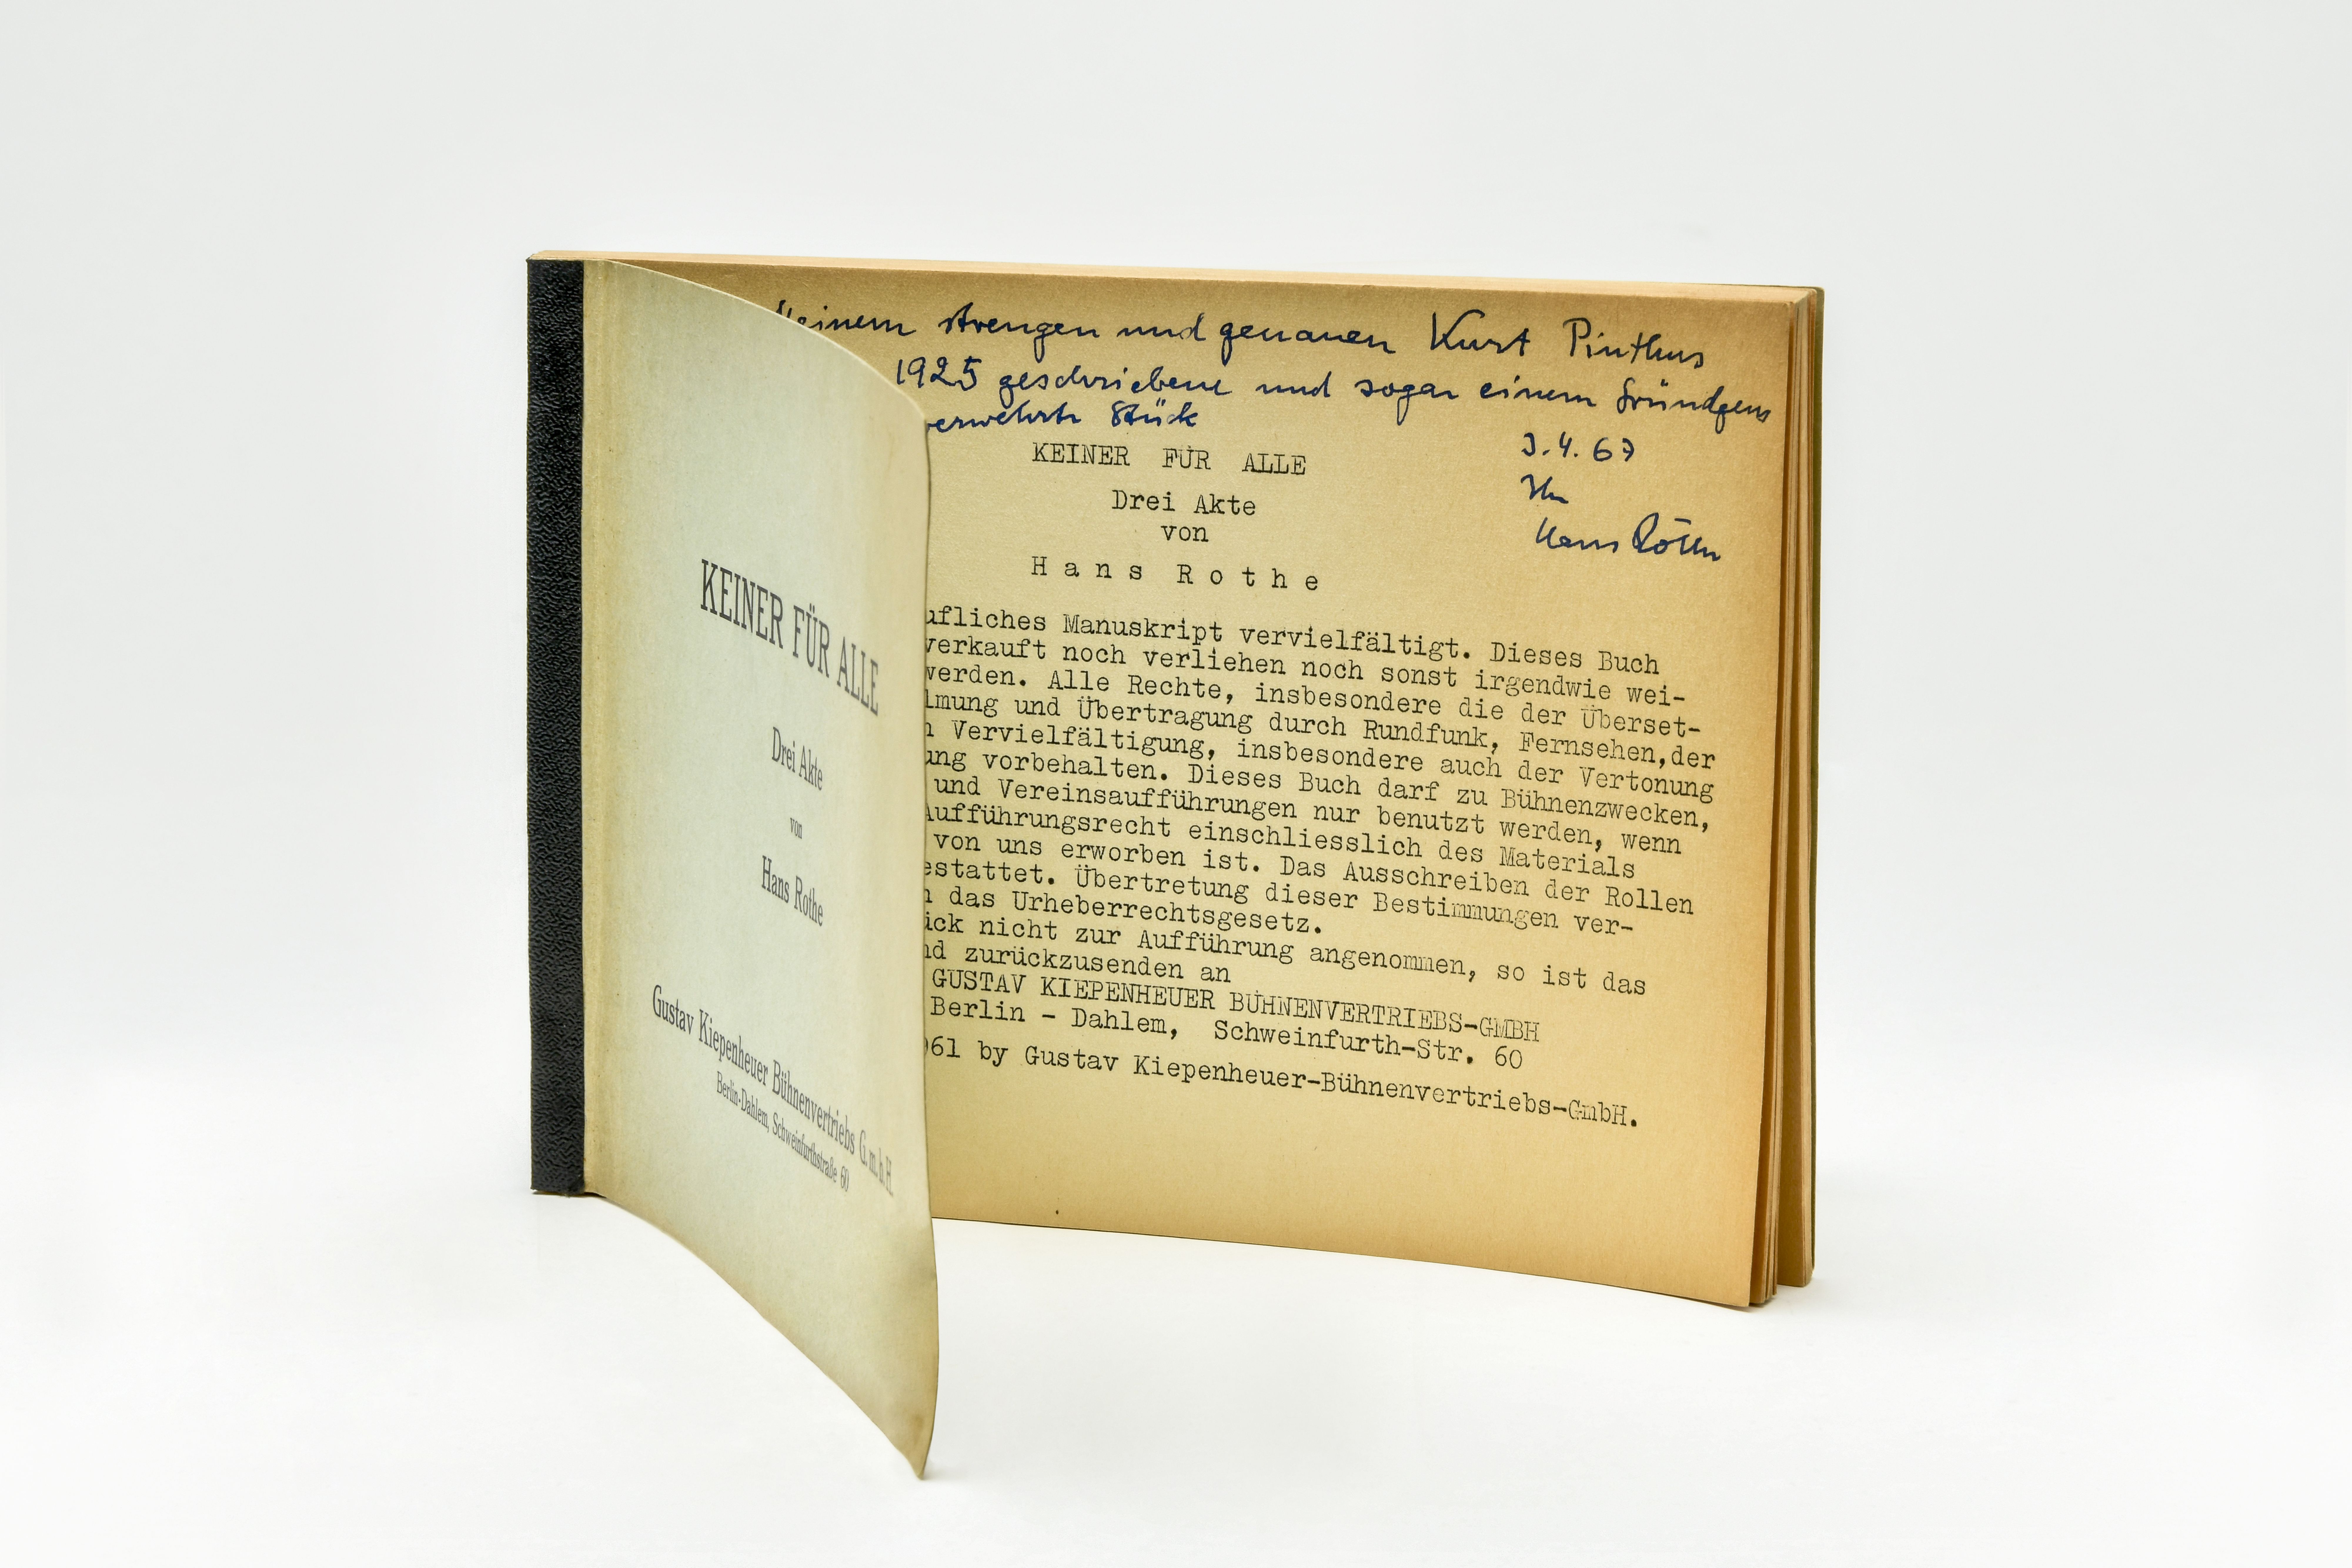 KEINER FÜR ALLE
Drei Akte
von
Hans Rothe
Gustav Kiepenheuer Bühnenvertriebs G.m.b.H.
Berlin-Dahlem, Schweinfurthstraße 60
einem strengen und genauen Kurt Pinthus
1925 geschriebene und sogar einem Gründgens
verwehrte Stück
3.4.67
Ihr
Hans Rothe
KEINER FÜR ALLE
Drei Akte
von
Hans Rothe
ufliches Manuskript vervielfältigt. Dieses Buch
verkauft noch verliehen noch sonst irgendwie wei-
werden. Alle Rechte, insbesondere die der Überset-
lmung und Übertragung durch Rundfunk, Fernsehen,der
n Vervielfältigung, insbesondere auch der Vertonung
ung vorbehalten. Dieses Buch darf zu Bühnenzwecken,
und Vereinsaufführungen nur benutzt werden, wenn
Aufführungsrecht einschliesslich des Materials
von uns erworben ist. Das Ausschreiben der Rollen
estattet. Übertretung dieser Bestimmungen ver-
n das Urheberrechtsgesetz.
ück nicht zur Aufführung angenommen, so ist das
nd zurückzusenden an
GUSTAV KIEPENHEUER BÜHNENVERTRIEBS-GMBH
Berlin - Dahlem, Schweinfurth-Str. 60
961 by Gustav Kiepenheuer-Bühnenvertriebs-GmbH.